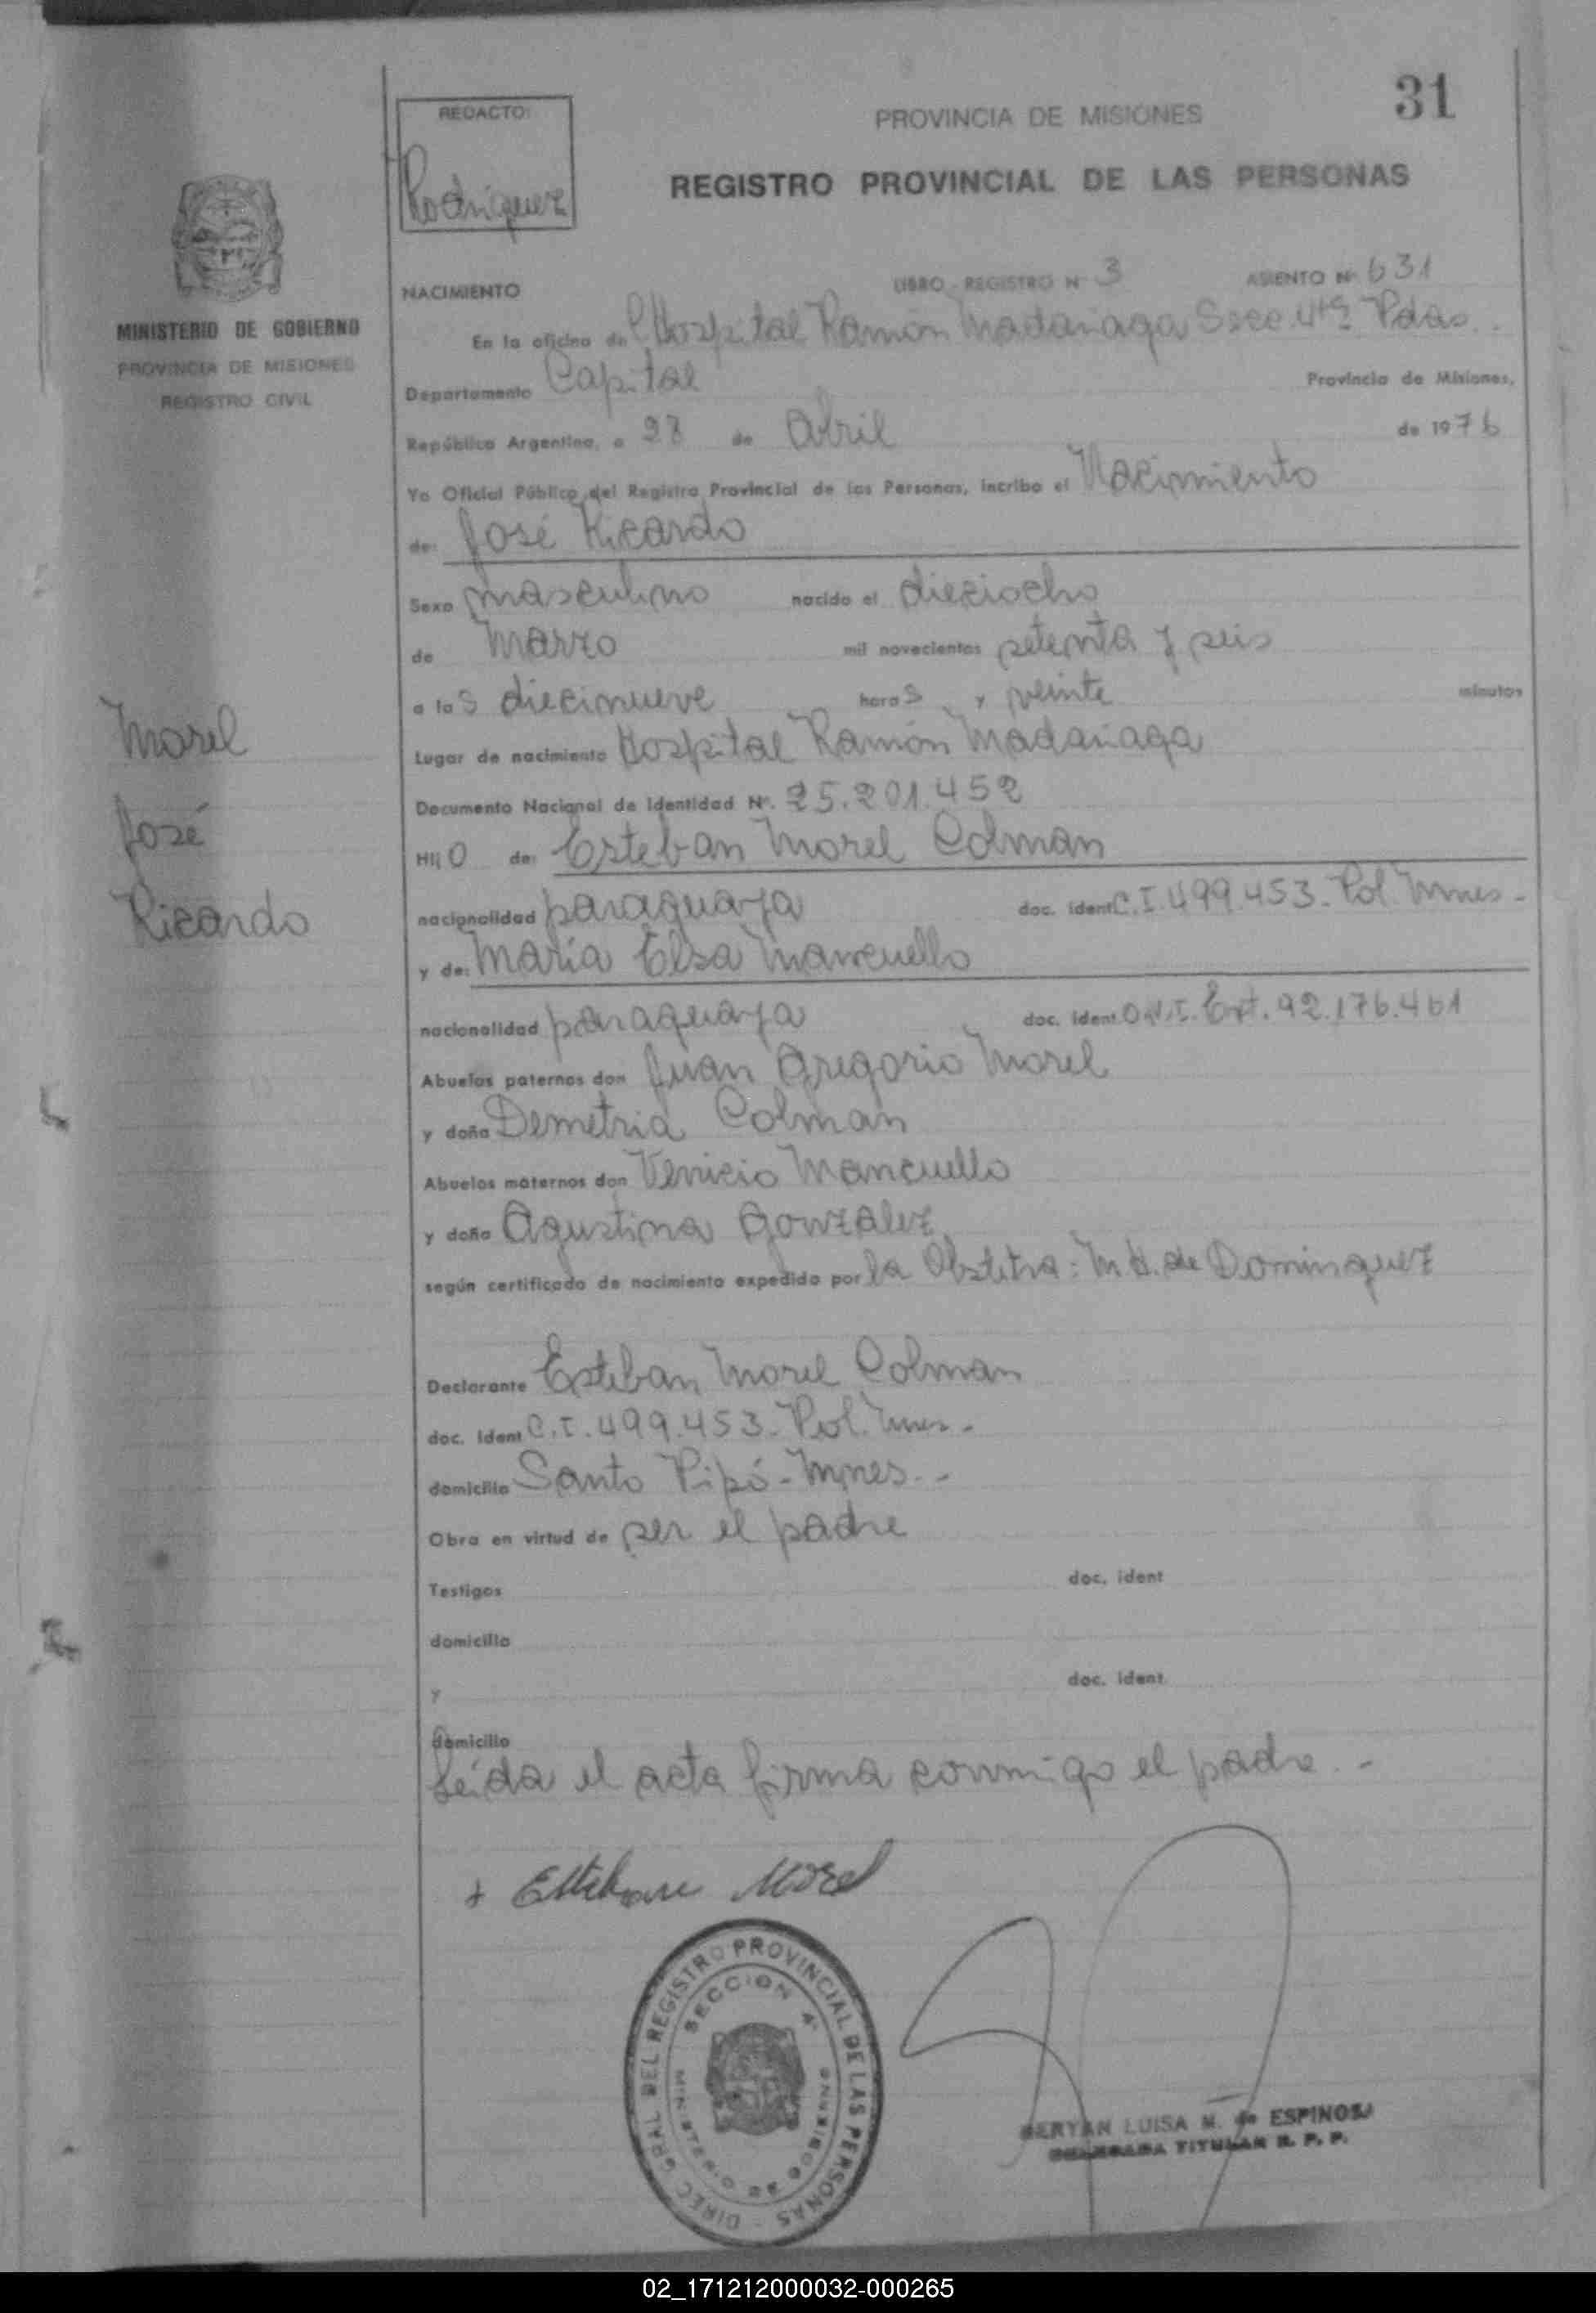 31
REDACTO:
Rodriguez
PROVINCIA DE MISIONES
REGISTRO PROVINCIAL DE LAS PERSONAS
MINISTERIO DE GOBIERNO
PROVINCIA DE MISIONES
REGISTRO CIVIL
NACIMIENTO LIBRO - REGISTRO Nº 3 ASIENTO Nº 631
En la oficina del Hospital Ramón Madariaga Secc. 4ta Pdas.
Departamento Capital Provincia de Misiones,
República Argentina, a 28 de Abril de 1976
Yo Oficial Público del Registro Provincial de las Personas, incribo el Nacimiento
de: José Ricardo
Sexo masculino nacido el dieciocho
de Marzo mil novecientos setenta y seis
a las diecinueve horas y veinte minutos
Lugar de nacimiento Hospital Ramón Madariaga
Documento Nacional de Identidad Nº. 25.201.452
Hijo de: Esteban Morel Colman
nacionalidad paraguaya doc. ident C.I. 499.453 - Pol. Mnes -
y de: María Elsa Mancuello
nacionalidad paraguaya doc. ident D.N.I. Ext. 92.176.461
Abuelos paternos don Juan Gregorio Morel
y doña Demetria Colman
Abuelos maternos don Venicio Mancuello
y doña Agustina Gonzalez
según certificado de nacimiento expedido por la Obstetra: M. H. de Dominguez
Morel
José
Ricardo
Declarante Esteban Morel Colman
doc. ident C.I. 499.453 - Pol. Mnes -
domicilio Santo Pipó - Mnes. -
Obra en virtud de ser el padre
Testigos doc. ident
domicilio
y doc. ident.
domicilio
Leída el acta firma conmigo el padre. -
+ Esteban Morel
DIREC. GRAL. DEL REGISTRO PROVINCIAL DE LAS PERSONAS -
SECCION 4ª
MINISTERIO DE GOBIERNO
LUISA M. de ESPINOSA
TITULAR R. P. P.
02_171212000032-000265